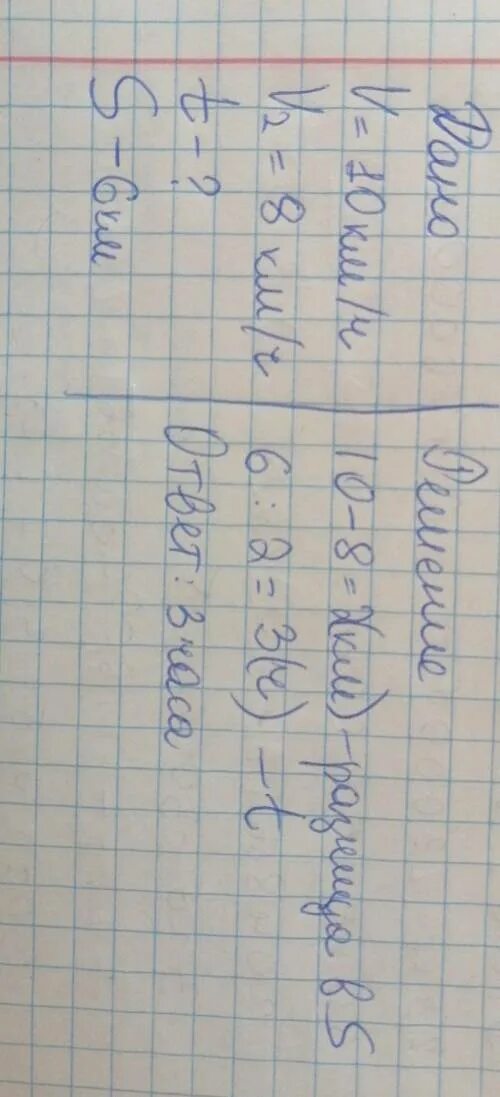 Дано
V = 10 км/ч
V2 = 8 км/ч
t - ?
S - 6 км
Решение
10 - 8 = 2(км) - разница в S
6 : 2 = 3(ч) - t
Ответ: 3 часа